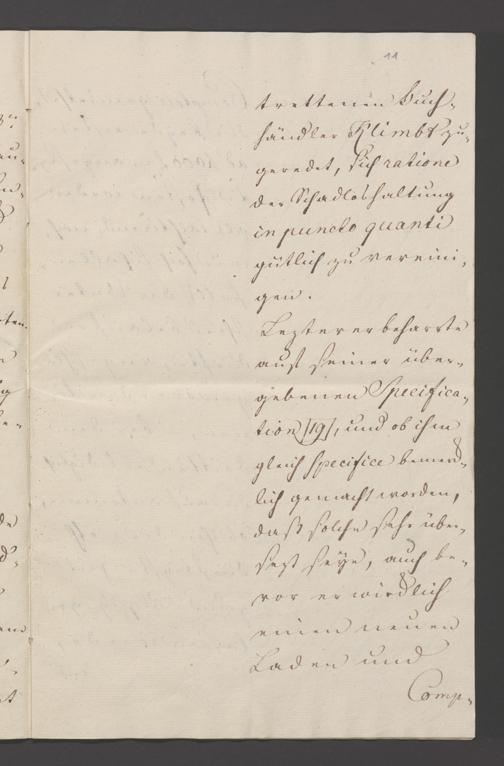 11
trettenen Buch-
händler Klimbt zu-
geredet, sich ratione
der Schadloshaltung
in puncto quanti
gütlich zu vereini-
gen.
Lezterer beharrte
auf seiner über-
gebenen Specifica-
tion /19/, und ob ihm
gleich specifice bemerk-
lich gemacht worden,
daß solche sehr über-
sezt seye, auch be-
vor er wirklich
einen neuen
Laden und
Comp-